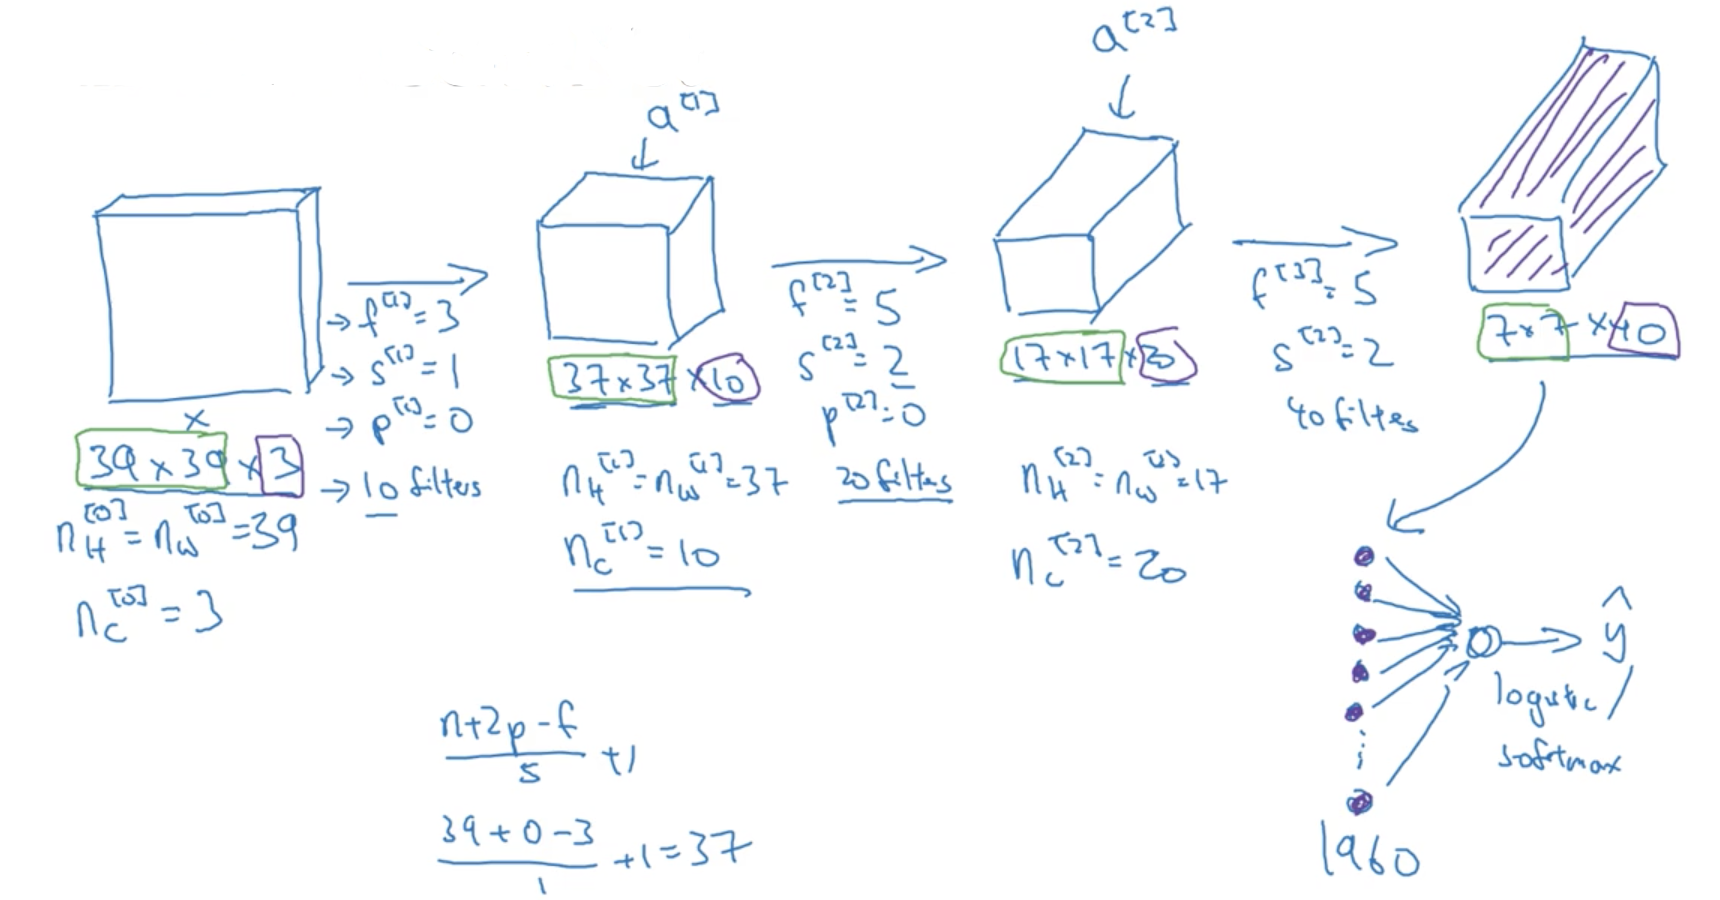 a^[1]
a^[2]
x
39 x 39 x 3
n_H^[0] = n_W^[0] = 39
n_C^[0] = 3
→ f^[1] = 3
→ s^[1] = 1
→ p^[1] = 0
→ 10 filters
37 x 37 x 10
n_H^[1] = n_W^[1] = 37
n_C^[1] = 10
f^[2] = 5
s^[2] = 2
p^[2] = 0
20 filters
17 x 17 x 20
n_H^[2] = n_W^[2] = 17
n_C^[2] = 20
f^[3] = 5
s^[2] = 2
40 filters
7 x 7 x 40
1960
ŷ
logistic /
softmax
(n+2p-f)/s +1
(39+0-3)/1 +1 = 37